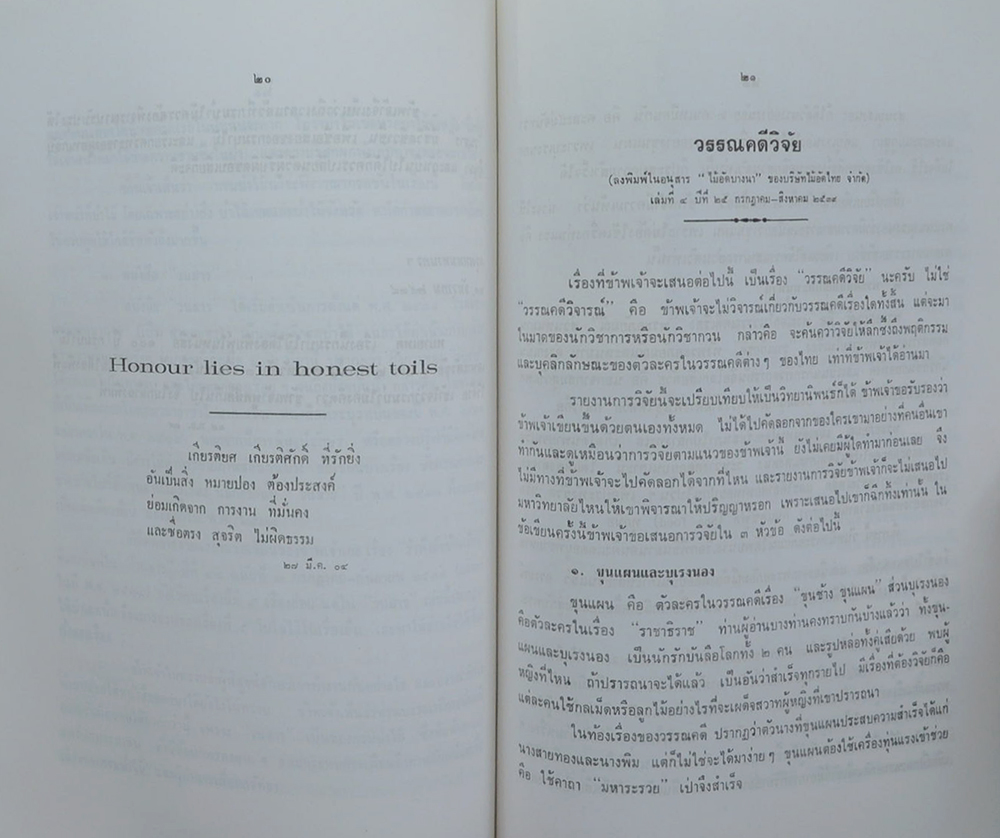 ๒๐
Honour lies in honest toils
เกียรติยศ เกียรติศักดิ์ ที่รักยิ่ง
อันเป็นสิ่ง หมายปอง ต้องประสงค์
ย่อมเกิดจาก การงาน ที่มั่นคง
และซื่อตรง สุจริต ไม่ผิดธรรม
๒๗ มี.ค. ๐๔
๒๑
วรรณคดีวิจัย
(ลงพิมพ์ในอนุสาร “ไม้อัดบางนา” ของบริษัทไม้อัดไทย จำกัด)
เล่มที่ ๔ ปีที่ ๒๕ กรกฎาคม–สิงหาคม ๒๕๓๙
เรื่องที่ข้าพเจ้าจะเสนอต่อไปนี้ เป็นเรื่อง “วรรณคดีวิจัย” นะครับ ไม่ใช่
“วรรณคดีวิจารณ์” คือ ข้าพเจ้าจะไม่วิจารณ์เกี่ยวกับวรรณคดีเรื่องใดทั้งสิ้น แต่จะมา
ในมาดของนักวิชาการหรือนักวิชากวน กล่าวคือ จะค้นคว้าวิจัยให้ลึกซึ้งถึงพฤติกรรม
และบุคลิกลักษณะของตัวละครในวรรณคดีต่างๆ ของไทย เท่าที่ข้าพเจ้าได้อ่านมา
รายงานการวิจัยนี้จะเปรียบเทียบให้เป็นวิทยานิพนธ์ก็ได้ ข้าพเจ้าขอรับรองว่า
ข้าพเจ้าเขียนขึ้นด้วยตนเองทั้งหมด ไม่ได้ไปคัดลอกจากของใครเขามาอย่างที่คนอื่นเขา
ทำกันและดูเหมือนว่าการวิจัยตามแนวของข้าพเจ้านี้ ยังไม่เคยมีผู้ใดทำมาก่อนเลย จึง
ไม่มีทางที่ข้าพเจ้าจะไปคัดลอกได้จากที่ไหน และรายงานการวิจัยข้าพเจ้าก็จะไม่เสนอไป
มหาวิทยาลัยไหนให้เขาพิจารณาให้ปริญญาหรอก เพราะเสนอไปเขาก็ฉีกทิ้งเท่านั้น ใน
ข้อเขียนครั้งนี้ข้าพเจ้าขอเสนอการวิจัยใน ๓ หัวข้อ ดังต่อไปนี้
๑. ขุนแผนและบุเรงนอง
ขุนแผน คือ ตัวละครในวรรณคดีเรื่อง “ขุนช้าง ขุนแผน” ส่วนบุเรงนอง
คือตัวละครในเรื่อง “ราชาธิราช” ท่านผู้อ่านบางท่านคงทราบกันบ้างแล้วว่า ทั้งขุน-
แผนและบุเรงนอง เป็นนักรักบันลือโลกทั้ง ๒ คน และรูปหล่อทั้งคู่เสียด้วย พบผู้
หญิงที่ไหน ถ้าปรารถนาจะได้แล้ว เป็นอันว่าสำเร็จทุกรายไป มีเรื่องที่ต้องวิจัยก็คือ
แต่ละคนใช้กลเม็ดหรือลูกไม้อย่างไรที่จะเผด็จสวาทผู้หญิงที่เขาปรารถนา
ในท้องเรื่องของวรรณคดี ปรากฏว่าตัวนางที่ขุนแผนประสบความสำเร็จได้แก่
นางสายทองและนางพิม แต่ก็ไม่ใช่จะได้มาง่ายๆ ขุนแผนต้องใช้เครื่องทุ่นแรงเข้าช่วย
คือ ใช้คาถา “มหาระรวย” เป่าจึงสำเร็จ